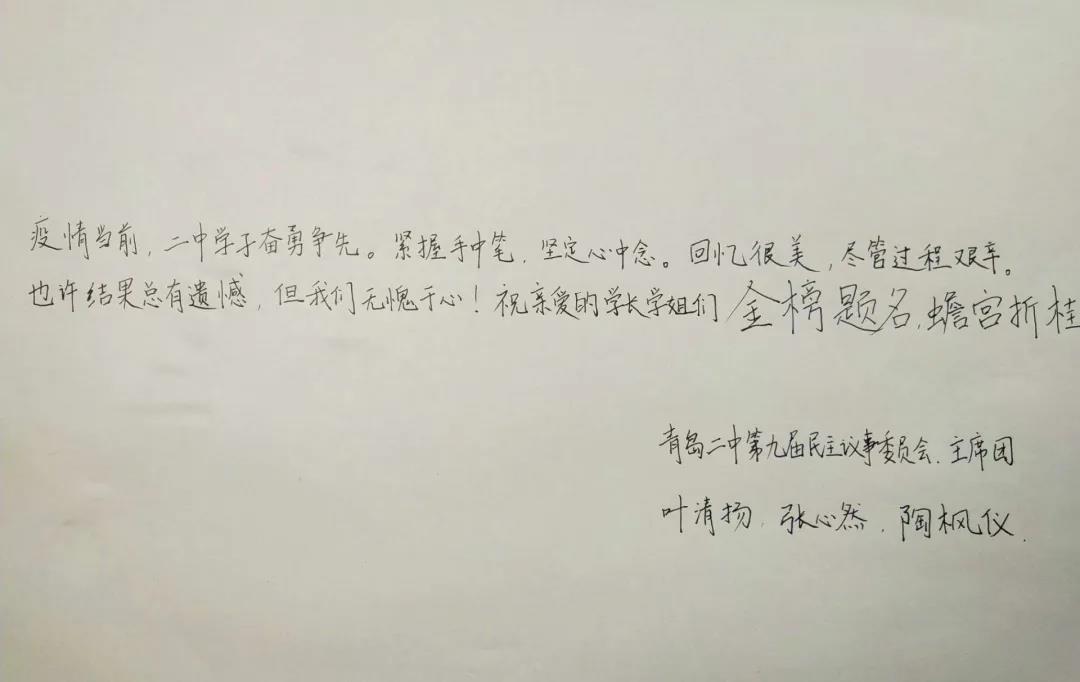 疫情当前，二中学子奋勇争先。紧握手中笔，坚定心中念。回忆很美，尽管过程艰辛。
也许结果总有遗憾，但我们无愧于心！祝亲爱的学长学姐们金榜题名，蟾宫折桂
青岛二中第九届民主议事委员会.主席团
叶清扬.张心然.陶枫仪.